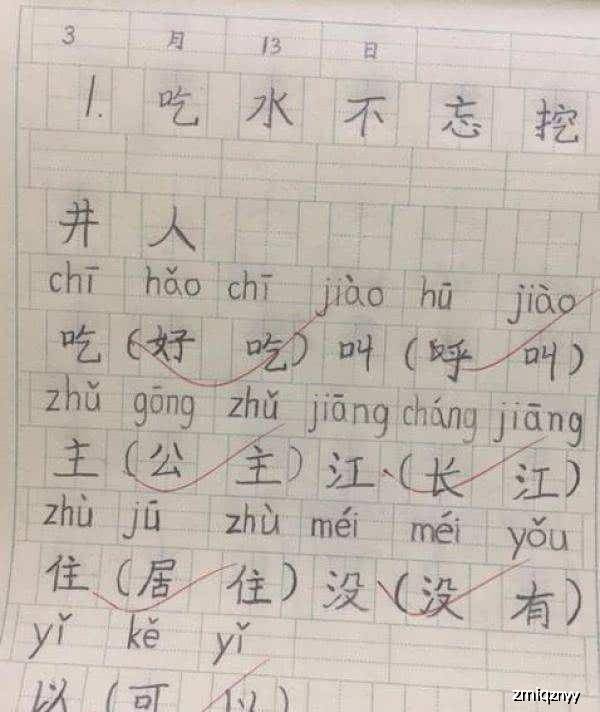 3 月 13 日
1. 吃水不忘挖
井人
chī hǎo chī jiào hū jiào
吃(好吃)叫(呼叫)
zhǔ gōng zhǔ jiāng cháng jiāng
主(公主)江(长江)
zhù jū zhù méi méi yǒu
住(居住)没(没有)
yǐ kě yǐ
以(可以)
zmiqznyy